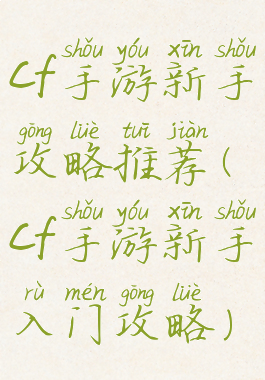 shǒu yóu xīn shǒu
cf手游新手
gōng lüè tuī jiàn
攻略推荐(
shǒu yóu xīn shǒu
cf手游新手
rù mén gōng lüè
入门攻略)